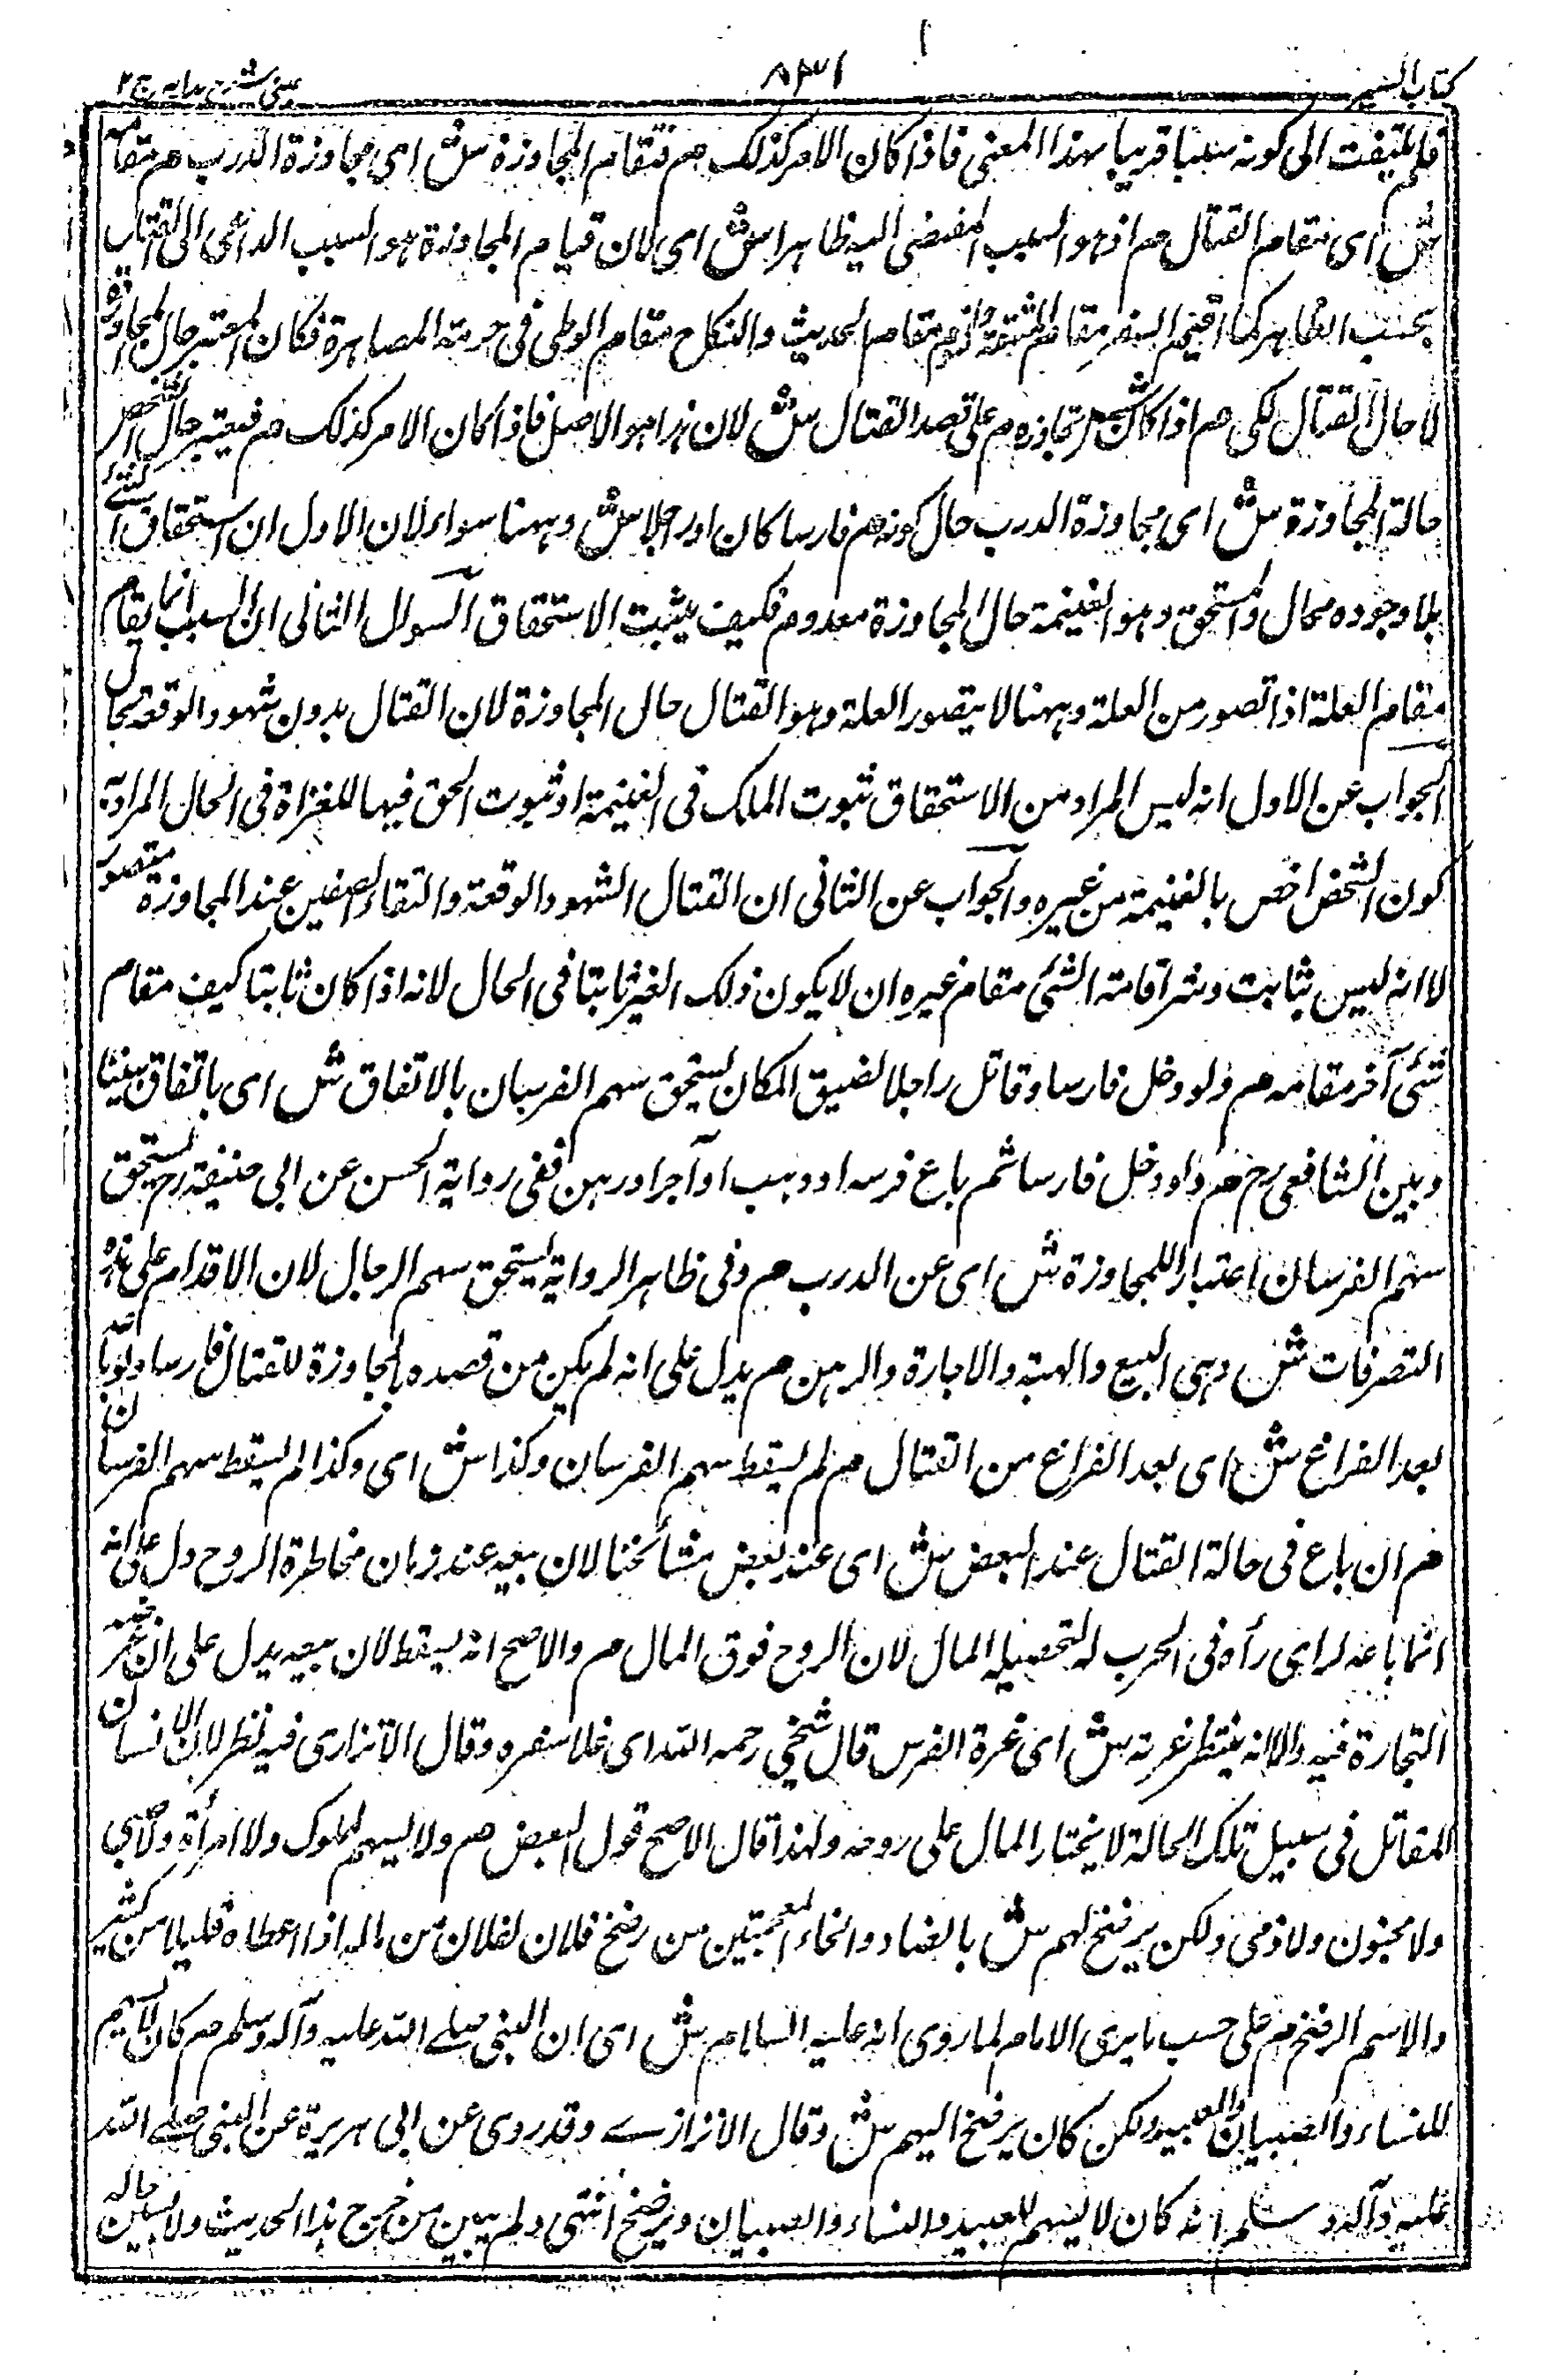 كتاب السير ٨٣١ عينى شرح هدايه ج ٢
فلم يلتفت الى كونه سببا قريبا بهذا المعنى فاذا كان الامر كذلك م فتقام المجاوزة ش اى مجاوزة الدرب م مقامه
ش اى مقام القتال م اذ هو السبب المفضى اليه ظاهرا ش اى لان قيام المجاوزة هو السبب الداعى الى القتال
بحسب الظاهر كما اقيم السفر مقام المشقة والنوم مقام الحديث والنكاح مقام الوطى فى حرمة المصاهرة فكان المعتبر حال المجاوزة
لا حال القتال لكى م اذا كان ش تجاوزه م على قصد القتال ش لان هذا هو الاصل فاذا كان الامر كذلك م فيعتبر حال الشخص
حالة المجاوزة ش اى مجاوزة الدرب حال كونه م فارسا كان او راجلا ش وههنا سوالان الاول ان استحقاق الشئ
بلا وجوده محال والمستحق وهو الغنيمة حال المجاوزة معدوم فكيف يثبت الاستحقاق السوال الثانى ان السبب انما يقام
مقام العلة اذا تصور من العلة وههنا لا يتصور العلة وهو القتال حال المجاوزة لان القتال بدون شهود الوقعة محال
الجواب عن الاول انه ليس المراد من الاستحقاق ثبوت الملك فى الغنيمة او ثبوت الحق فيها للغزاة فى الحال المراد به
كون الشخص اخص بالغنيمة من غيره والجواب عن الثانى ان القتال الشهود الوقعة والتقاء الصفين عند المجاوزة متصور
لا انه ليس بثابت وشر اقامة الشئ مقام غيره ان لا يكون ذلك الغير ثابتا فى الحال لانه اذا كان ثابتا كيف مقام
شئ آخر مقامه م ولو دخل فارسا وقاتل راجلا لضيق المكان يستحق سهم الفرسان بالاتفاق ش اى باتفاق بيننا
وبين الشافعى رح م ولو دخل فارسا ثم باع فرسه او وهب او آجر او رهن ففى رواية الحسن عن ابى حنيفة رح يستحق
سهم الفرسان اعتبارا للمجاوزة ش اى عن الدرب م وفى ظاهر الرواية يستحق سهم الرجال لان الاقدام على هذه
التصرفات ش وهى البيع والهبة والاجارة والرهن م يدل على انه لم يكن من قصده بالمجاوزة للقتال فارسا ولو باعه
بعد الفراغ ش اى بعد الفراغ من القتال م لم يسقط سهم الفرسان وكذا ش اى وكذا لم يسقط سهم الفرسان
م ان باع فى حالة القتال عند البعض ش اى عند بعض مشائخنا لان بيعه عند زمان مخاطرة الروح دل على انه
انما باعه لراى رأه فى الحرب له لتحصيله المال لان الروح فوق المال م والاصح انه يسقط لان بيعه يدل على ان غرضه
التجارة فيه والا انه ينتظر غرته ش اى غرة الفرس قال شيخى رحمه الله اى غلا سفره وقال الاتزارى فيه نظر لان الانسان
المقاتل فى سبيل تلك الحالة لا يختار المال على روحه ولهذا قال الاصح قول البعض م ولا يسهم لمملوك ولا امرأة ولا صبى
ولا مجنون ولا ذمى ولكن يرضخ لهم ش بالضاد والخاء المعجمتين من رضخ فلان لفلان من ماله اذا اعطاه قليلا من كثير
والاسم الرضخ م على حسب ما يرى الامام لما روى انه عليه السلام ش اى ان النبى صلے الله عليه وآله وسلم م كان لا يسهم
للنساء والصبيان والعبيد ولكن كان يرضخ اليهم ش وقال الاتزازے وقد روى عن ابى هريرة عن النبى صلے الله
عليه وآله وسلم انه كان لا يسهم للعبيد والنساء والصبيان ويرضخ انتهى ولم يبين من خرج هذا الحديث ولا يبين حاله